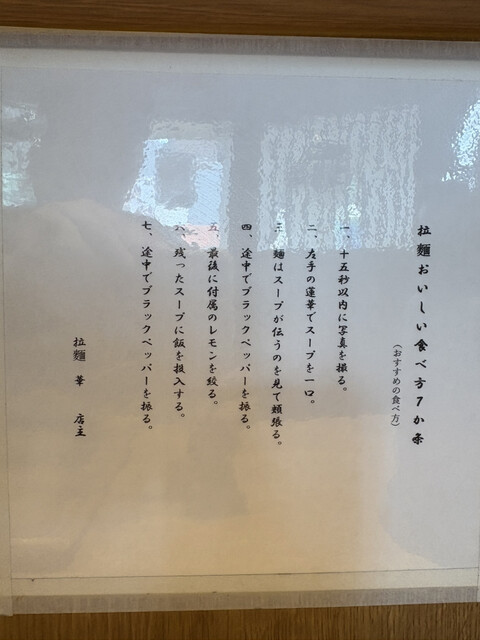 拉麺おいしい食べ方7か条
(おすすめの食べ方)
一、十五秒以内に写真を撮る。
二、左手の蓮華でスープを一口。
三、麺はスープが伝うのを見て頬張る。
四、途中でブラックペッパーを振る。
五、最後に付属のレモンを絞る。
六、残ったスープに飯を投入する。
七、途中でブラックペッパーを振る。
拉麺 華 店主